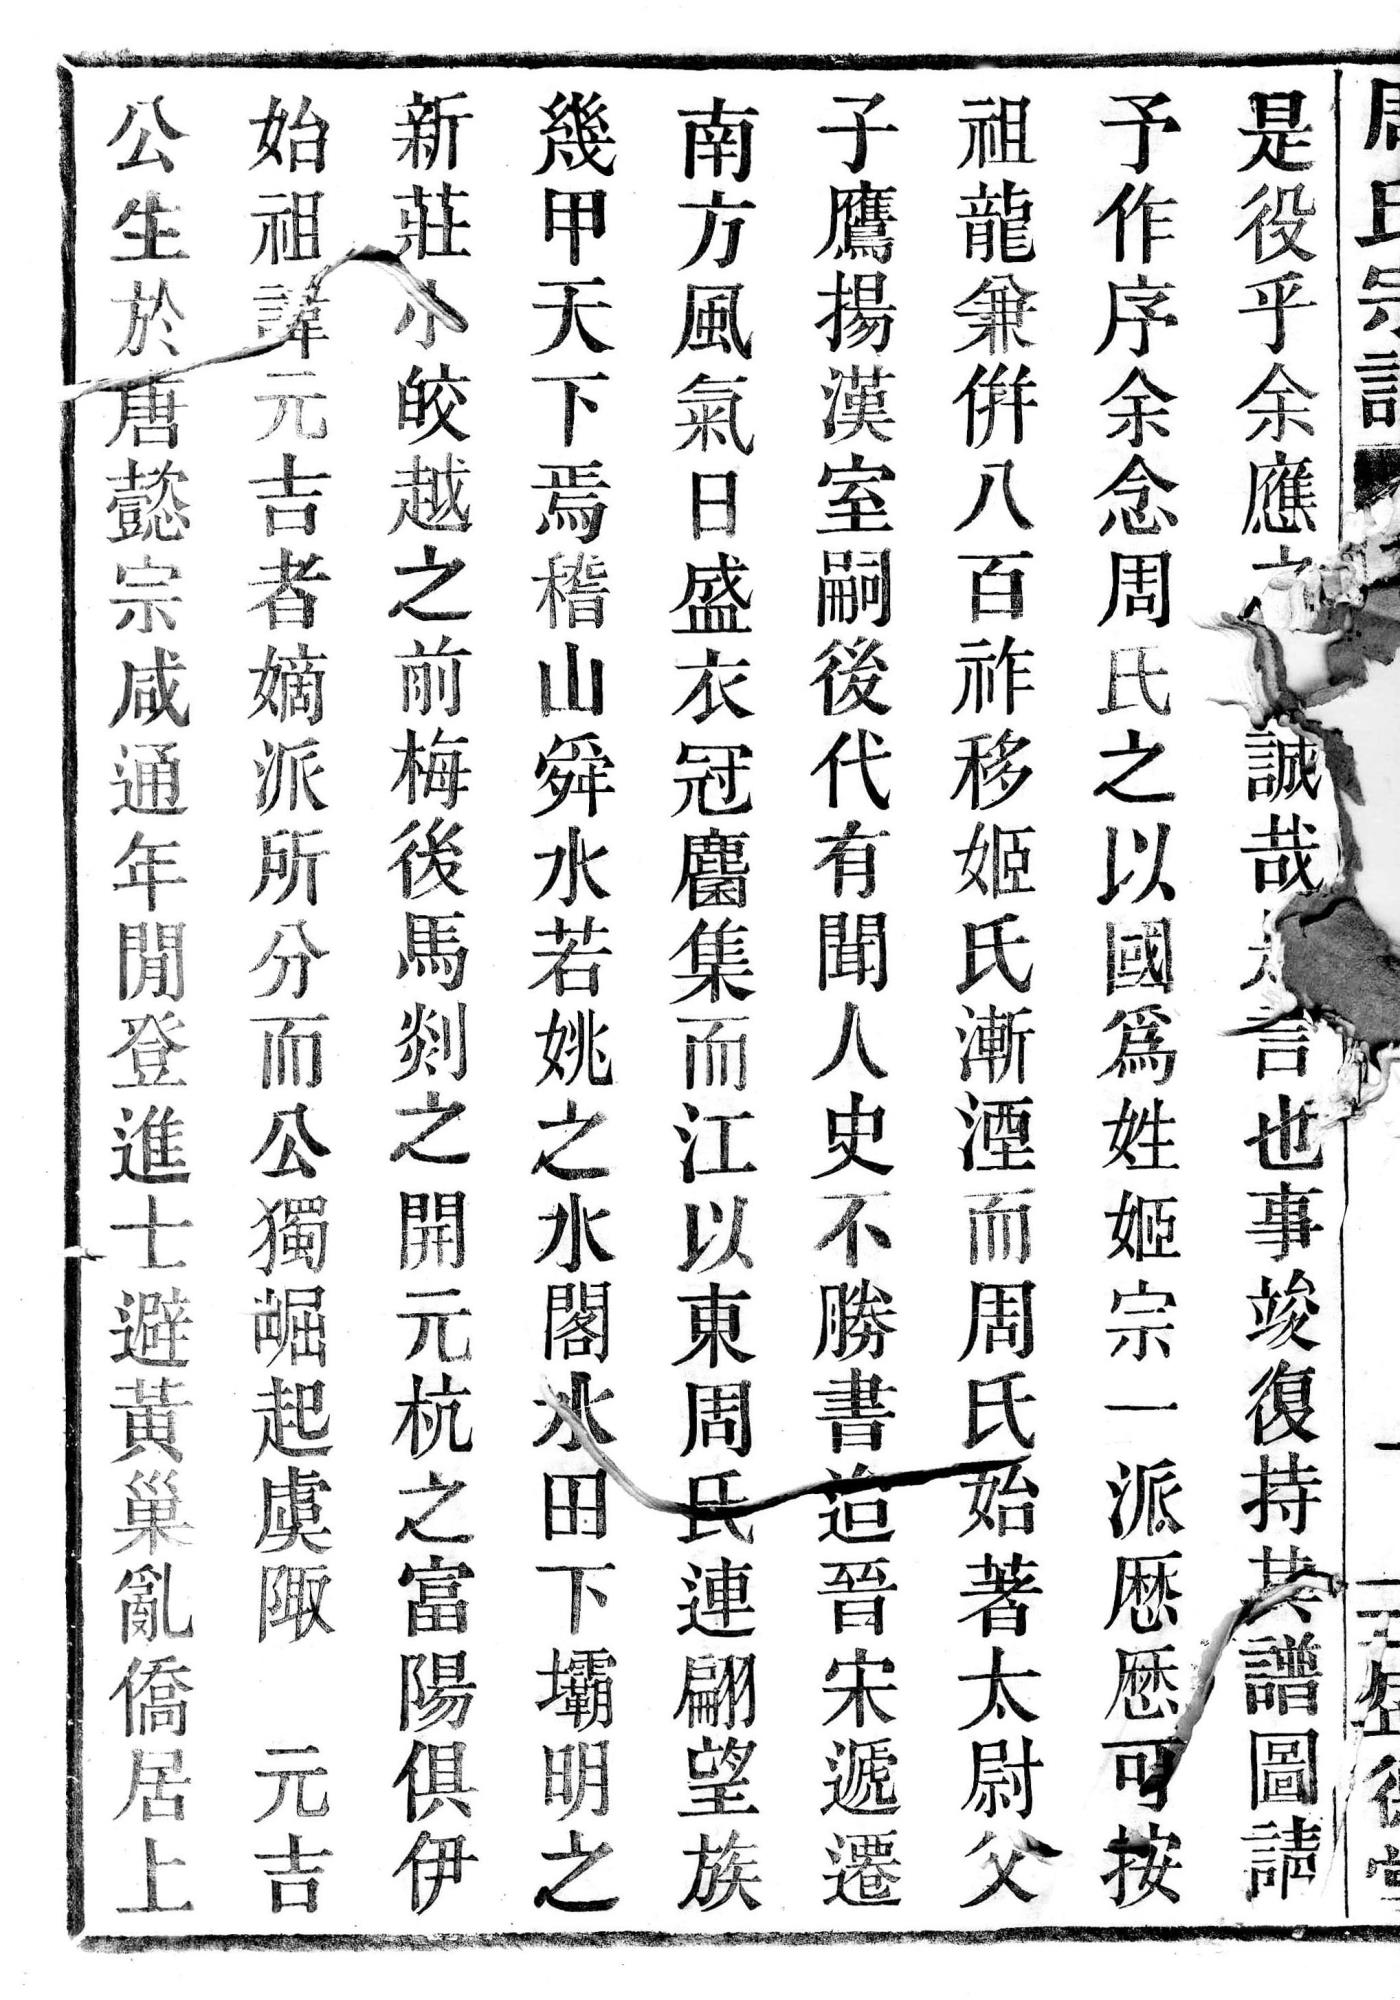 周氏宗譜
是役乎余應之誠哉是言也事竣復持其譜圖請
予作序余念周氏之以國爲姓姬宗一派歷歷可按
祖龍兼併八百祚移姬氏漸湮而周氏始著太尉父
子鷹揚漢室嗣後代有聞人史不勝書迨晉宋遞遷
南方風氣日盛衣冠麕集而江以東周氏連翩望族
幾甲天下焉稽山舜水若姚之水閣水田下壩明之
新莊小皎越之前梅後馬剡之開元杭之富陽俱伊
始祖諱元吉者嫡派所分而公獨崛起虞陬　元吉
公生於唐懿宗咸通年閒登進士避黃巢亂僑居上